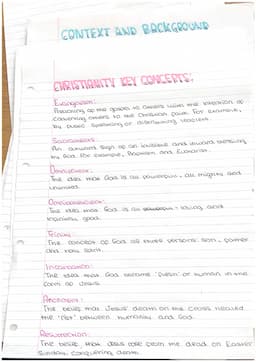 CONTEXT AND BACKGROUND
CHRISTIANITY KEY CONCEPTS:
Evangelism:
Preaching of the gospel to others with the intention of
converting others to the Christian faith. For example,
by public speaking or distributing leaflets.
Sacraments:
An outward sign of an invisible and inward blessing
by God. For example, Baptism and Eucharist.
Omnipotence:
The idea that God is all powerful, all mighty and
unlimited.
Omnibenevolence:
The idea that God is all loving and
infinitely good.
Trinity:
The concept of God as three persons: son, father
and holy spirit.
Incarnation:
The idea that God became 'flesh' or human in the
form of Jesus.
Atonement:
The belief that Jesus' death on the cross healed
the 'rift' between humanity and God.
Resurrection:
The belief that Jesus rose from the dead on Easter
Sunday, conquering death.